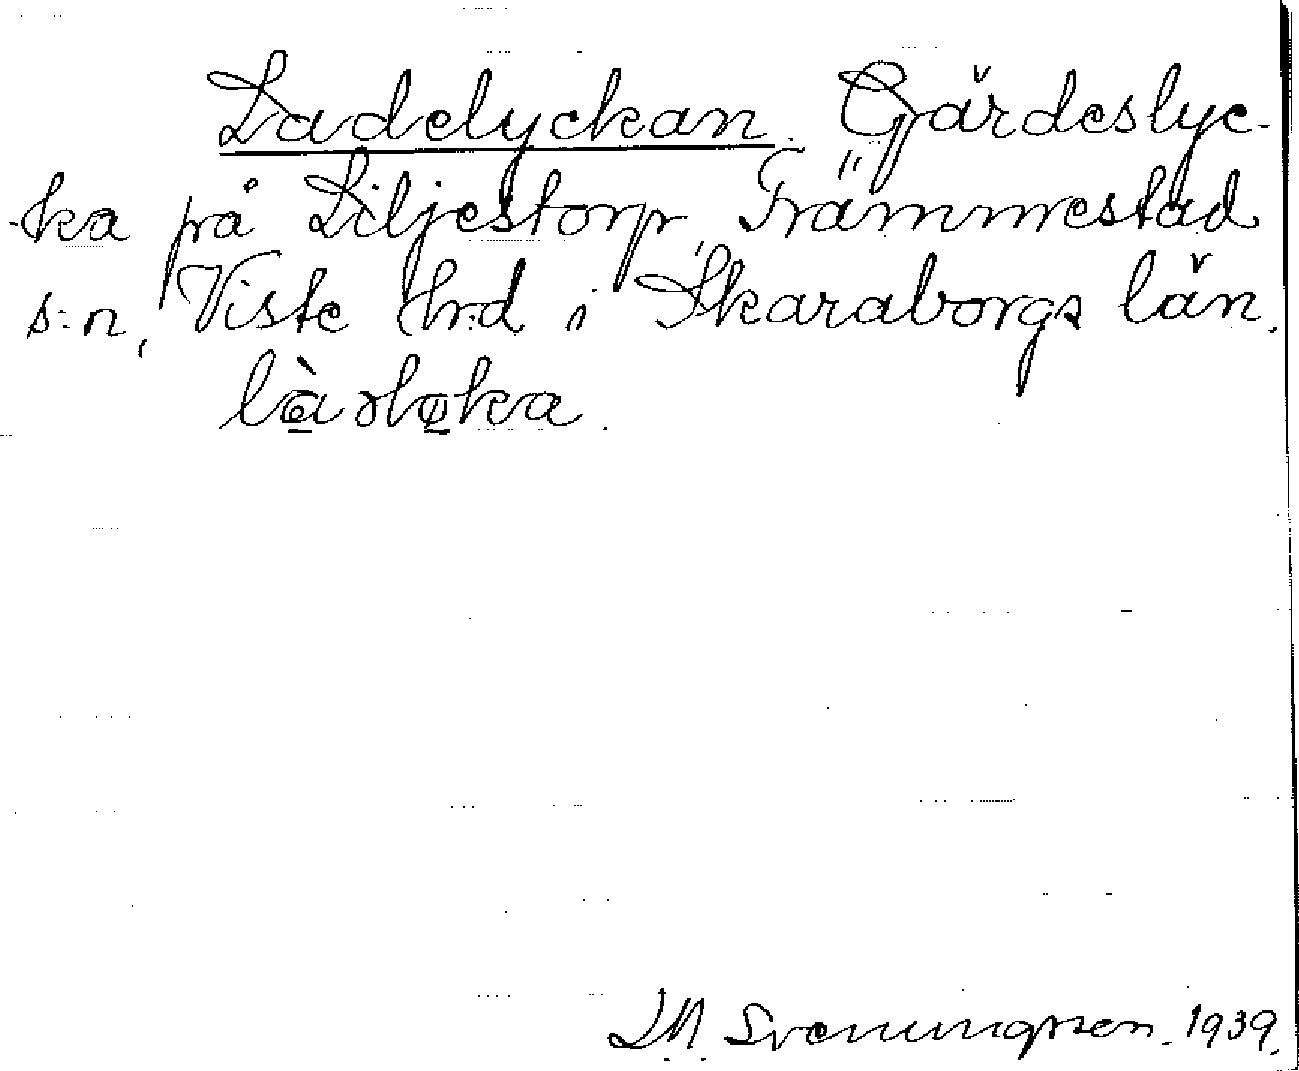 Ladelyckan. Gärdeslyc-
ka på Liljestorp, Trämmestad
s:n, Viste hrd i Skaraborgs län.
Svenungsson. 1939.